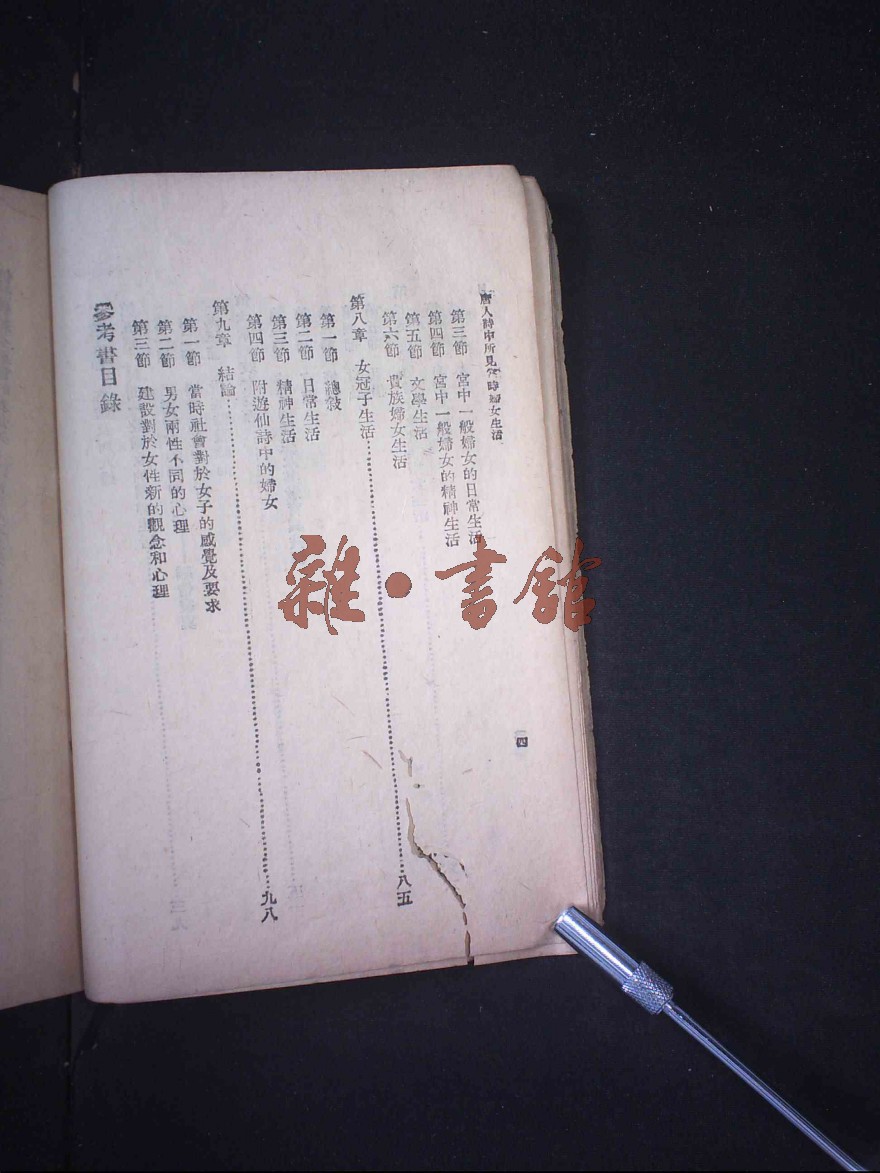 唐人詩中所見當時婦女生活
第三節 宮中一般婦女的日常生活
第四節 宮中一般婦女的精神生活
第五節 文學生活
第六節 貴族婦女生活
第八章 女冠子生活……八五
第一節 總敍
第二節 日常生活
第三節 精神生活
第四節 附遊仙詩中的婦女
第九章 結論……九八
第一節 當時社會對於女子的感覺及要求
第二節 男女兩性不同的心理
第三節 建設對於女性新的觀念和心理
參考書目錄
四
雜·書館